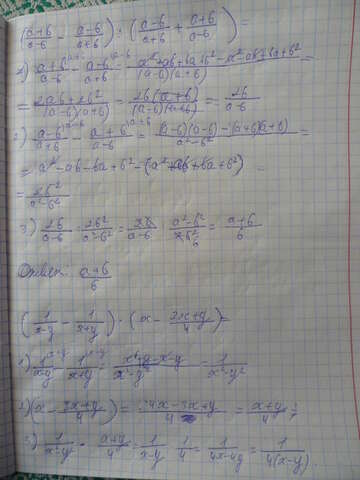 (a+b/a-b - a-b/a+b) : (a-b/a+b + a+b/a-b) =
1) a+b/a-b - a-b/a+b = a²+ab+ba+b²-a²-ab+ba+b²/(a-b)(a+b) =
= 2ab+2b²/(a-b)(a+b) = 2b(a+b)/(a-b)(a+b) = 2b/a-b
2) a-b/a+b - a+b/a-b = (a-b)(a-b)-(a+b)(a+b)/a²-b² =
= a²-ab-ba+b²-(a²+ab+ba+b²) =
= 2b²/a²-b²
3) 2b/a-b : 2b²/a²-b² = 2b/a-b · a²-b²/2b² = a+b/b
Ответ: a+b/b
(1/x-y - 1/x+y) · (x - 3x+y/4) =
1) 1/x-y - 1/x+y = x+y-x-y/x²-y² = 1/x²-y²
2) (x - 3x+y/4) = 4x-3x+y/4 = x+y/4
3) 1/x-y · x+y/4 = 1/x-y · 1/4 = 1/4x-4y = 1/4(x-y).